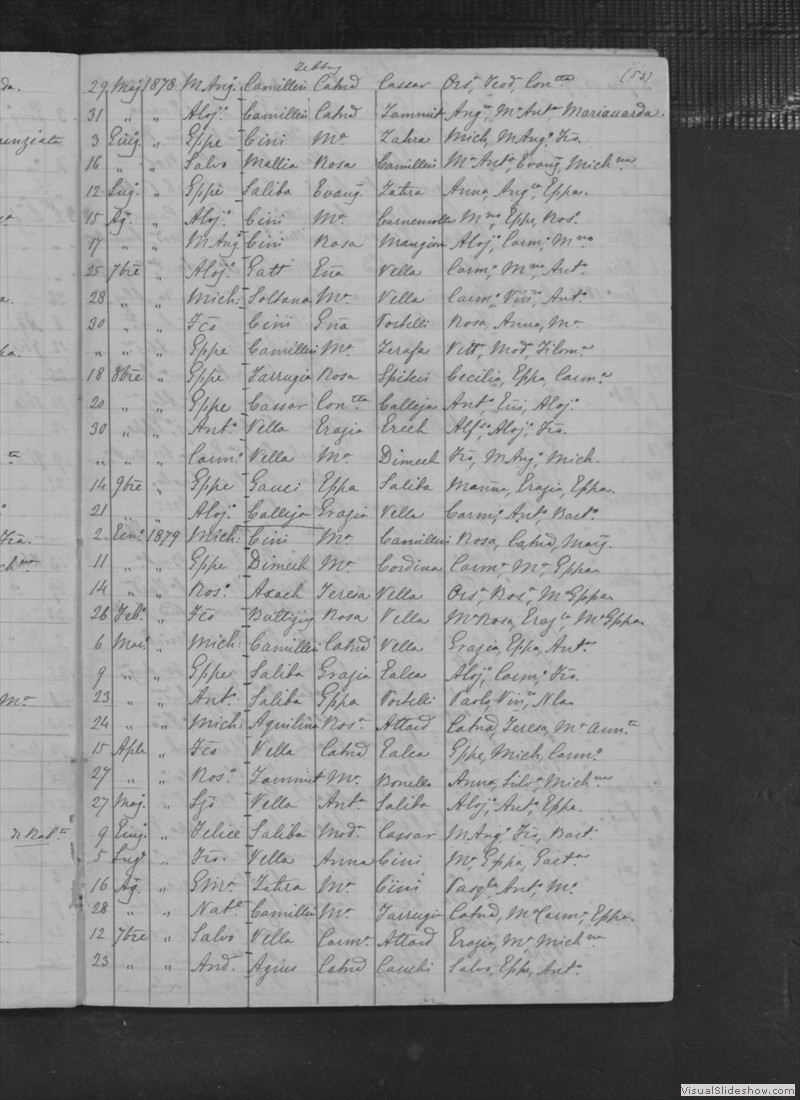 Zebbug
(53)
29 Maj 1878 M Ang. Camilleri Catnd Cassar Ors, Teod, Con.tta
31 " " Aloj. Camilleri Catnd Zammit Ang.a, M.a Ant, Mariauarda.
3 Giug " Gppe Cini M.a Zahra Mich, M Ang. Fco.
16 " " Salvo Mallia Rosa Camilleri M.a Ant.a, Evang, Mich.na
12 Lug. " Gppe Saliba Evang. Zahra Anna, Ang.ca, Gppa.
15 Ag. " Aloj. Cini M.a M.no, Gppe, Ros.
17 " " M Ang. Cini Rosa Mangion Aloj. Carm. M.no
25 7bre " Aloj. Gatt Gña Vella Carm. M.no, Ant.
28 " " Mich: Soltana M.a Vella Carm. Ant.
30 " " Fco Cini Gña Portelli Rosa, Anna, M.a
" " " Gppe Camilleri M.a Zerafa Vitt.a, Mod, Filom.a
18 8bre " Gppe Farrugia Rosa Spiteri Cecilia, Gppa, Carm.a
20 " " Gppe Cassar Con.tta Calleja Ant. Aloj.
30 " " Ant. Vella Grazia Grech Alf. Aloj. Fco.
" " " Carm. Vella M.a Dimech Fco, M Ang. Mich.
14 9bre " Gppe Gauci Gppa Saliba Grazia, Gppa.
21 " " Aloj. Calleja Grazia Vella Carm. Ant. Bart.
2 Gen. 1879 Mich: Cini M.a Camilleri Rosa, Catnd,
11 " " Gppe Dimech M.a Cordina Carm. M.a Gppa
14 " " Ros. Axach Teresa Vella Ors, Ros, M.a Gppa
26 Feb. " Fco Buttigieg Rosa Vella M.a Rosa, M.a Gppa
6 Mar. " Mich: Camilleri Catnd Vella Grazia, Gppa, Ant.
9 " " Gppe Saliba Grazia Galea Aloj. Carm. Fco.
23 " " Ant. Saliba Gppa Portelli Paolo, Nla
24 " " Mich: Aquilina Ros.a Attard Catnd, Teresa, M.a
15 Aple " Fco Vella Catnd Galea Gppe, Mich, Carm.
27 " " Ros. Zammit M.a Bonello Anna, Silv. Mich.na
27 Maj. " Vella Ant.a Saliba Aloj. Ant. Gppa.
9 Giug. " Felice Saliba Mod. Cassar M Ang. Fco, Bart
5 Lug. " Fco. Vella Anna Cini M.a Gppa, Gaet.a
16 Ag. " Zahra M.a Cini Ant. M.a
28 " " Nat.e Camilleri M.a Farrugia Catnd, M.a Carm. Gppa
12 7bre " Salvo Vella Carm. Attard Grazia, M.a Mich.na
23 " " And. Agius Catnd Cauchi Salvo, Gppe, Ant.
VisualSlideshow.com